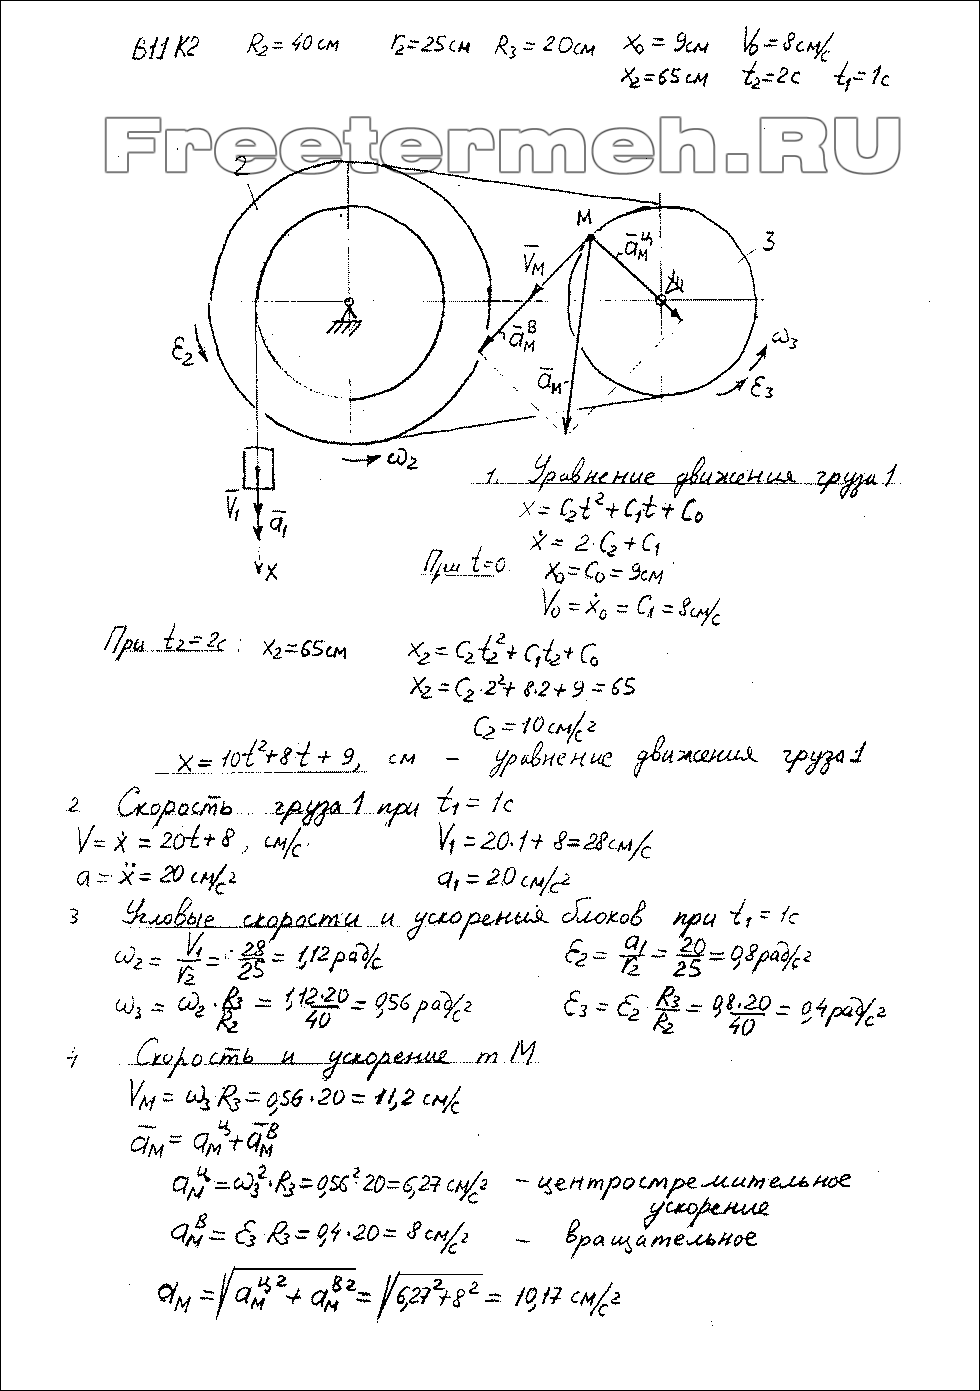 В11 К2 R₂ = 40 см r₂ = 25 см R₃ = 20 см x₀ = 9 см V₀ = 8 см/с
x₂ = 65 см t₂ = 2с t₁ = 1с
Freetermeh.RU
2
M
3
a̅ᴹц
V̅ᴍ
a̅ᴹв
ω₃
ε₂
a̅ᴍ
ε₃
ω₂
V̅₁
a̅₁
x
1. Уравнение движения груза 1
x = C₂t² + C₁t + C₀
ẋ = 2·C₂ + C₁
При t=0 x₀ = C₀ = 9см
V₀ = ẋ₀ = C₁ = 8 см/с
При t₂ = 2с : x₂ = 65 см x₂ = C₂t₂² + C₁t₂ + C₀
x₂ = C₂·2² + 8·2 + 9 = 65
C₂ = 10 см/с²
x = 10t² + 8t + 9, см – уравнение движения груза 1
2 Скорость груза 1 при t₁ = 1с
V = ẋ = 20t + 8, см/с V₁ = 20·1 + 8 = 28 см/с
a = ẍ = 20 см/с² a₁ = 20 см/с²
3 Угловые скорости и ускорения блоков при t₁ = 1с
ω₂ = V₁/r₂ = 28/25 = 1,12 рад/с ε₂ = a₁/r₂ = 20/25 = 0,8 рад/с²
ω₃ = ω₂ · R₃/R₂ = 1,12·20/40 = 0,56 рад/с² ε₃ = ε₂ · R₃/R₂ = 0,8·20/40 = 0,4 рад/с²
4 Скорость и ускорение т М
Vᴍ = ω₃ R₃ = 0,56·20 = 11,2 см/с
a̅ᴍ = aᴹц + a̅ᴹв
aᴹц = ω₃²·R₃ = 0,56²·20 = 6,27 см/с² – центростремительное
ускорение
aᴹв = ε₃·R₃ = 0,4·20 = 8 см/с² – вращательное
aᴍ = √(aᴹц² + aᴹв²) = √(6,27² + 8²) = 10,17 см/с²